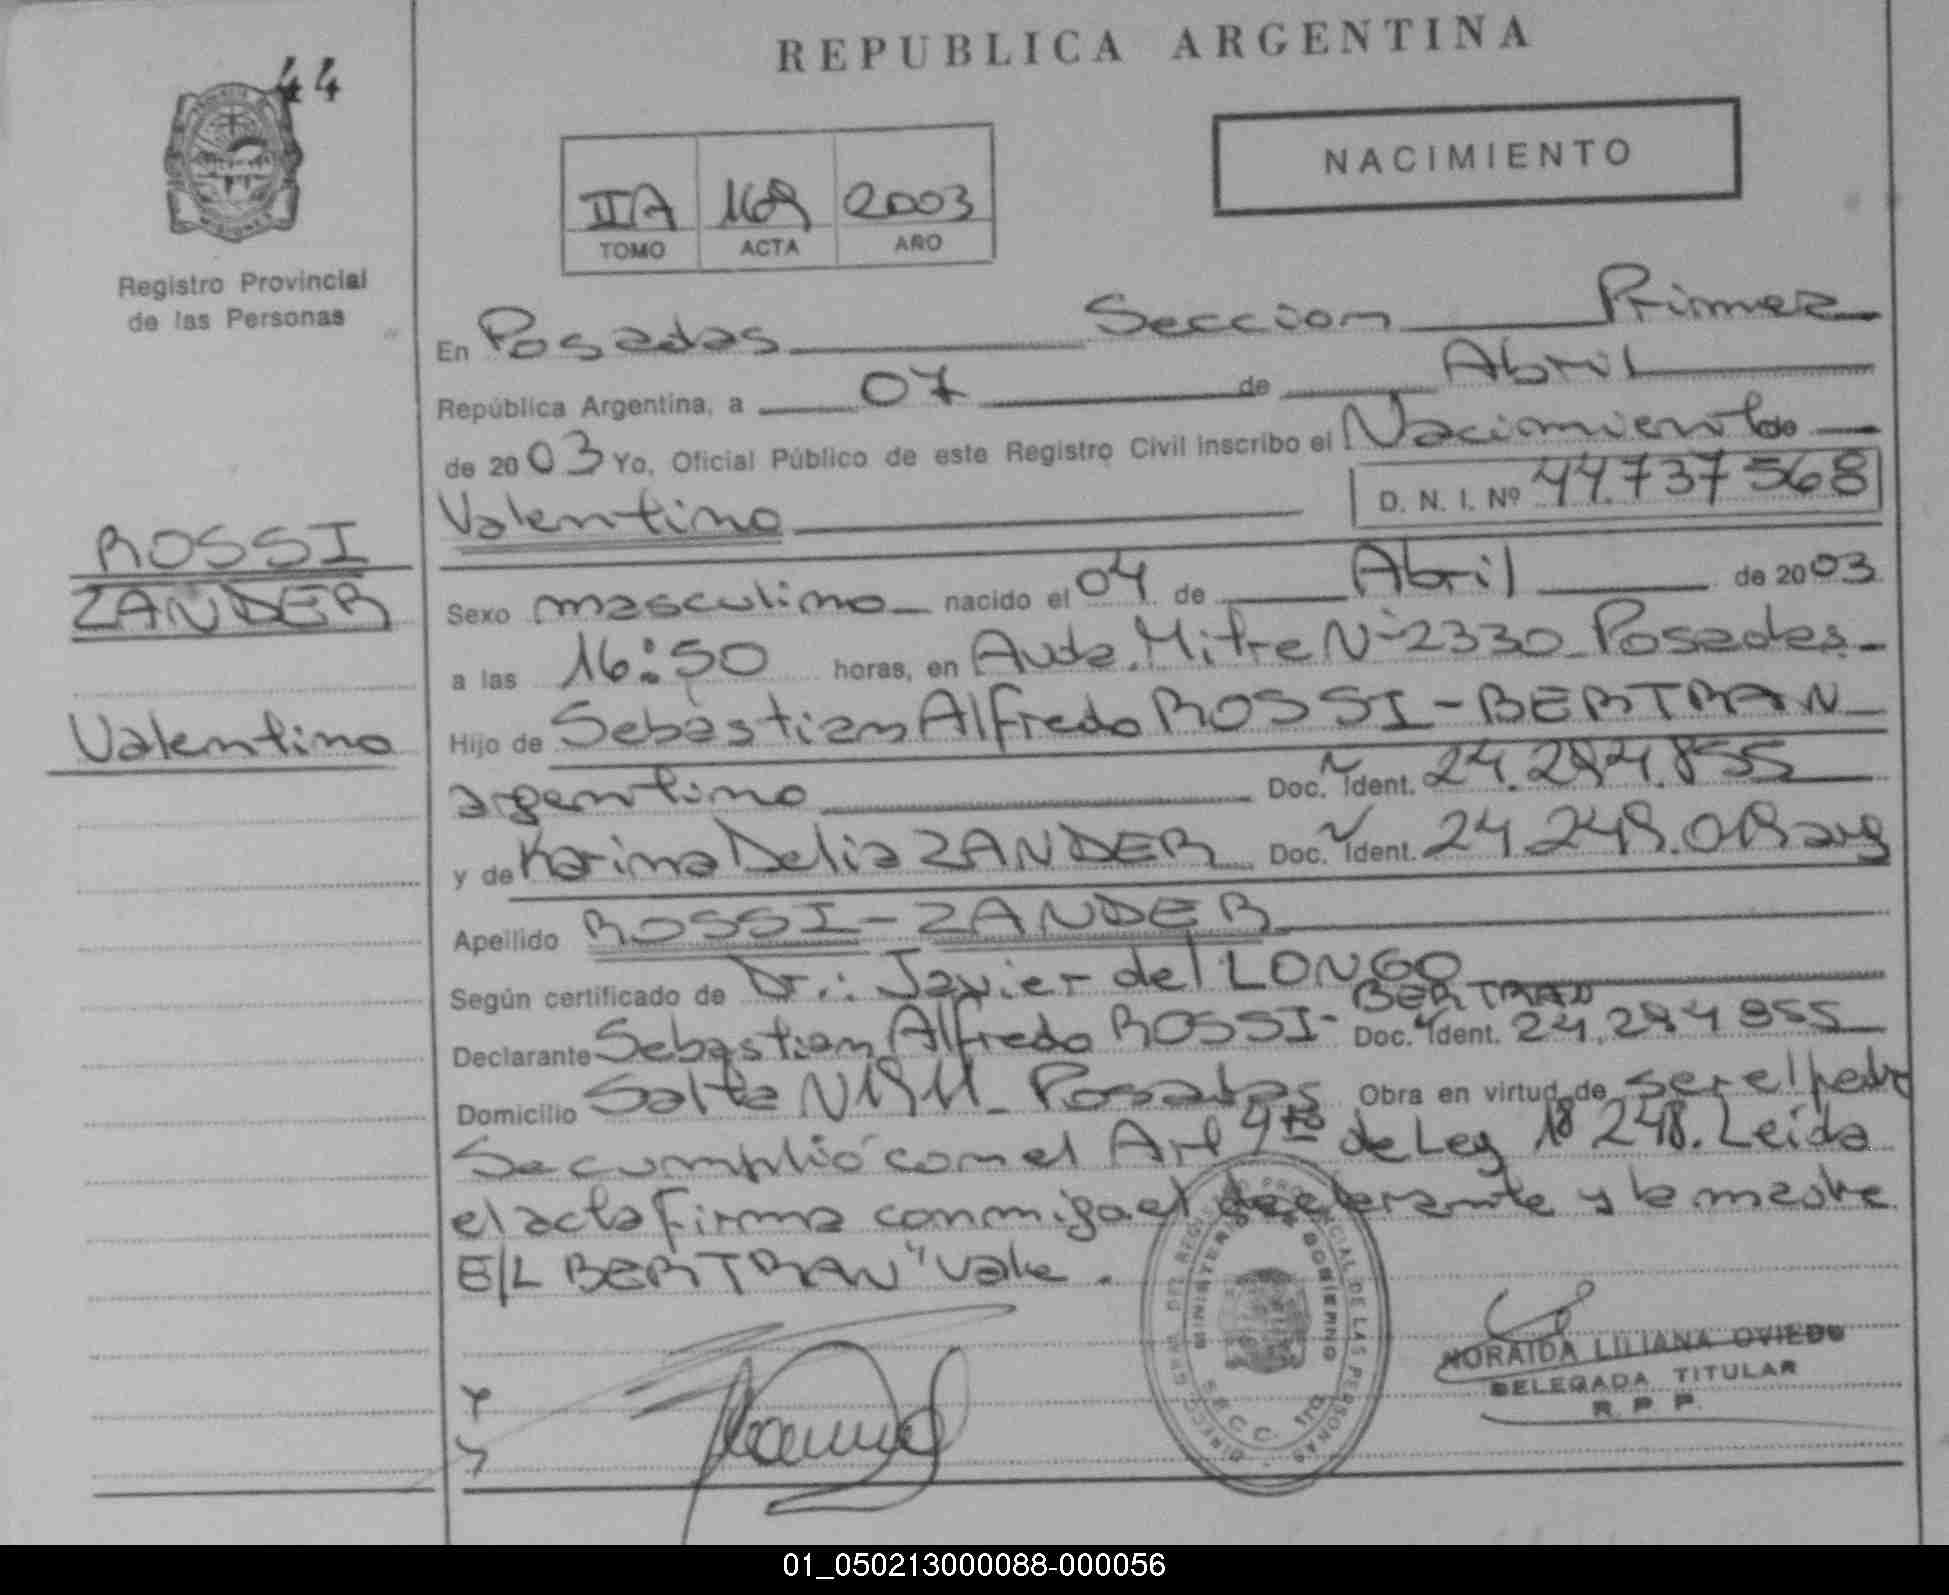 44
REPUBLICA ARGENTINA
NACIMIENTO
IIA 169 2003
TOMO ACTA AÑO
Registro Provincial
de las Personas
En Posadas Seccion Primera
República Argentina, a 07 de Abril
de 2003 Yo, Oficial Público de este Registro Civil inscribo el Nacimiento de
Valentino D. N. I. Nº 44.737568
ROSSI
ZANDER
Valentino
Sexo masculino nacido el 04 de Abril de 2003
a las 16:50 horas, en Avda. Mitre Nº 2330 Posadas
Hijo de Sebastian Alfredo ROSSI-BERTRAN
argentino Doc. Ident. 24.294.855
y de Karina Delia ZANDER Doc. Ident. 24.249.019 arg
Apellido ROSSI-ZANDER
Según certificado de Dr.: Javier del LONGO
BERTRAN
Declarante Sebastian Alfredo ROSSI- Doc. Ident. 24.294855
Domicilio Salta Nº1911 Posadas Obra en virtud de ser el padre
Se cumplió con el Art 4to de Ley 18248. Leida
el acta firma conmigo el declarante y la madre
E/L BERTRAN "vale.
DIRECC. GRAL. DEL REGISTRO PROVINCIAL DE LAS PERSONAS
MINISTERIO GOBIERNO
SECC. 1ra
NORAIDA LILIANA OVIEDO
DELEGADA TITULAR
R. P. P.
01_050213000088-000056